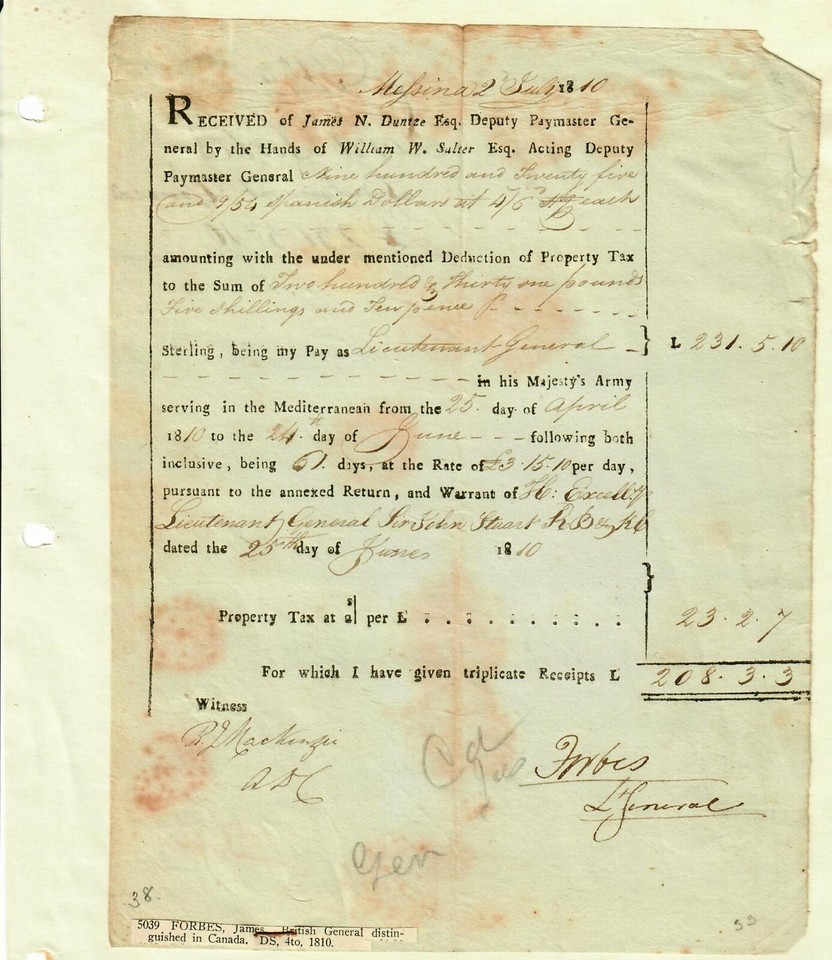 Messina 2d July 1810
RECEIVED of James N. Duntze Esq. Deputy Paymaster Ge-
neral by the Hands of William W. Salter Esq. Acting Deputy
Paymaster General Nine hundred and Twenty five
and 9/54 Spanish Dollars at 4/6 each
amounting with the under mentioned Deduction of Property Tax
to the Sum of Two hundred & Thirty one pounds
Five shillings and Ten pence
Sterling, being my Pay as Lieutenant General } L 231. 5. 10
in his Majesty's Army
serving in the Mediterranean from the 25. day of April
1810 to the 24th day of June - - - following both
inclusive, being 61. days, at the Rate of £3.15.10 per day,
pursuant to the annexed Return, and Warrant of H: Excelly
Lieutenant General Sir John Stuart KB & KC
dated the 25th day of June 1810
}
Property Tax at 2s per L 23. 2. 7
For which I have given triplicate Receipts L 208. 3. 3
Witness
R J Mackenzie
ADC
Forbes
Lt General
Gen
38
33
5039 FORBES, James. British General distin-
guished in Canada. DS, 4to, 1810.